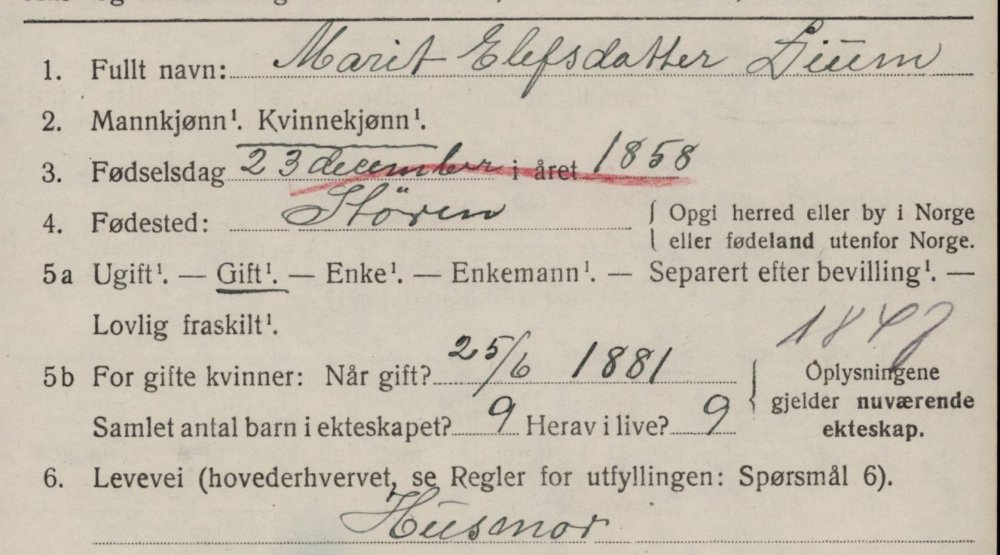 1. Fullt navn: Marit Elefsdatter Liüm
2. Mannkjønn¹. Kvinnekjønn¹.
3. Fødselsdag 23 december i året 1858
4. Fødested: Stören { Opgi herred eller by i Norge
eller fødeland utenfor Norge.
5a Ugift¹. — Gift¹. — Enke¹. — Enkemann¹. — Separert efter bevilling¹. —
Lovlig fraskilt¹.
5b For gifte kvinner: Når gift? 25/6 1881 { Oplysningene
gjelder nuværende
ekteskap.
Samlet antal barn i ekteskapet? 9 Herav i live? 9
6. Levevei (hovederhvervet, se Regler for utfyllingen: Spørsmål 6).
Hüsmor